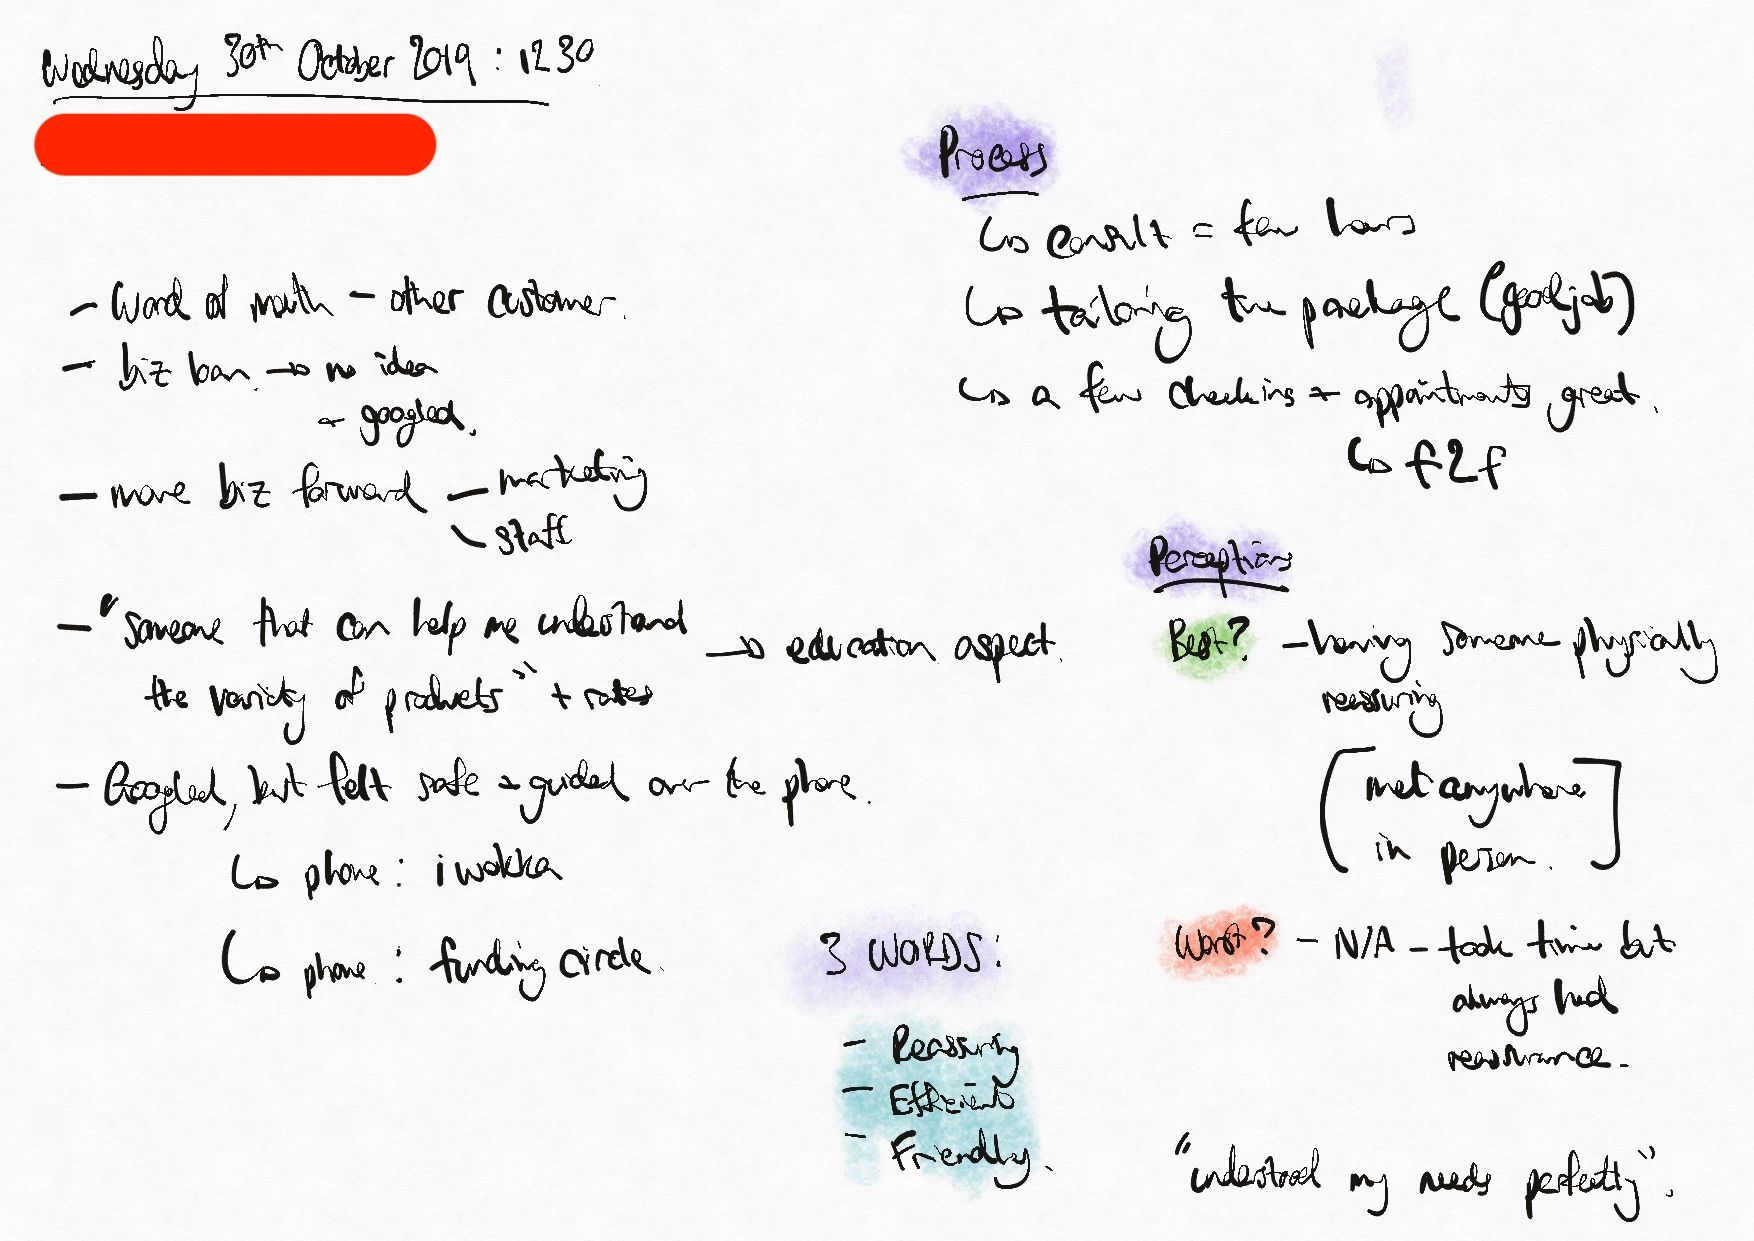 Wednesday 30th October 2019 : 12 30
- Word of mouth - other customer.
- biz loan → no idea
+ googled.
- move biz forward - marketing
- staff
- "someone that can help me understand
the variety of products" + rates
→ education aspect.
- Googled, but felt safe + guided over the phone.
↳ phone : iwokka
↳ phone : funding circle.
Process
↳ consult = few hours
↳ tailoring the package (good job)
↳ a few checkins + appointments great.
↳ f2f
Perceptions
Best? - having someone physically
reassuring
[met anywhere
in person.]
Worst? - N/A - took time but
always had
reassurance.
"understood my needs perfectly".
3 WORDS:
- Reassuring
- Efficient
- Friendly.